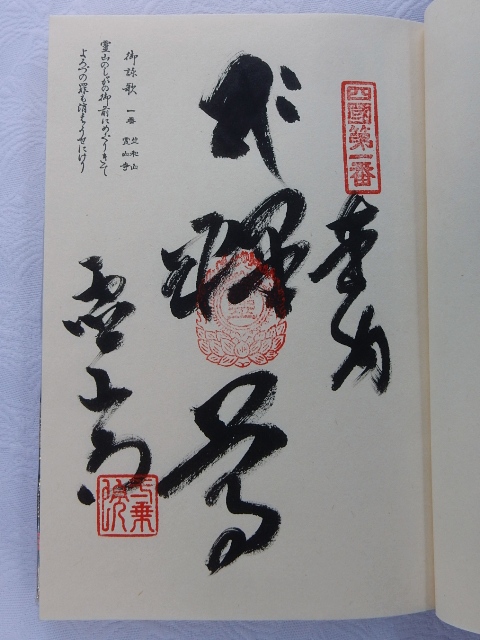 四國第一番
奉納
釈迦尊
霊山寺
一乗院
御詠歌 一番 竺和山 霊山寺
霊山のしゃかの御前にめぐりきて
よろづの罪も消えうせにけり